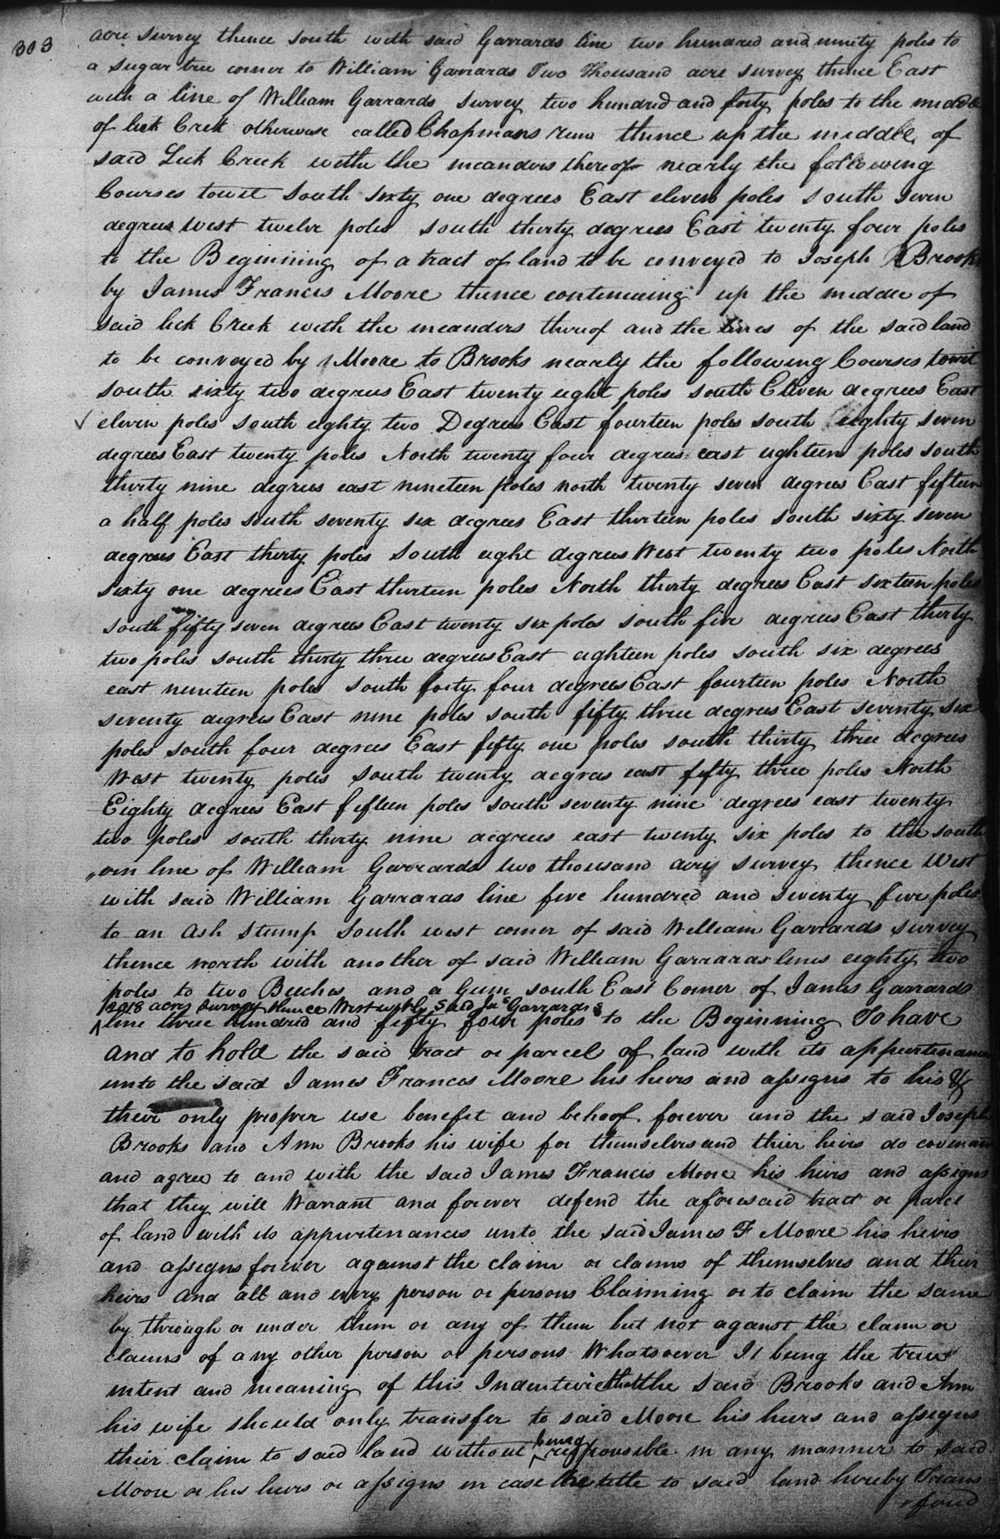 303
acre survey thence south with said Garrards line two hundred and ninety poles to
a sugar tree corner to William Garrards Two Thousand acre survey thence East
with a line of William Garrards survey two hundred and forty poles to the middle
of lick Creek otherwise called Chapmans run thence up the middle of
said Lick Creek with the meanders thereof nearly the following
Courses towit South sixty one degrees East eleven poles South seven
degrees west twelve poles south thirty degrees East twenty four poles
to the Beginning of a tract of land to be conveyed to Joseph Brooks
by James Francis Moore thence continuing up the middle of
said lick Creek with the meanders thereof and the lines of the said land
to be conveyed by Moore to Brooks nearly the following Courses towit
South sixty two degrees East twenty eight poles south Eleven degrees East
eleven poles south eighty two Degrees East fourteen poles south eighty seven
degrees East twenty poles North twenty four degrees east eighteen poles south
thirty nine degrees east nineteen poles north twenty seven degrees East fifteen
a half poles south seventy six degrees East thirteen poles south sixty seven
degrees East thirty poles South eight degrees West twenty two poles North
sixty one degrees East thirteen poles North thirty degrees East sixteen poles
south fifty seven degrees East twenty six poles south five degrees East thirty
two poles south thirty three degrees East eighteen poles south six degrees
east nineteen poles south forty four degrees East fourteen poles North
seventy degrees East nine poles south fifty three degrees East seventy six
poles south four degrees East fifty one poles south thirty three degrees
West twenty poles south twenty degrees east fifty three poles North
Eighty degrees East fifteen poles south seventy nine degrees east twenty
two poles south thirty nine degrees east twenty six poles to the south
ern line of William Garrards two thousand acre survey thence West
with said William Garrards line five hundred and seventy five poles
to an Ash Stump South west corner of said William Garrards survey
thence north with another of said William Garrards lines eighty two
poles to two Beeches and a Gum south East Corner of James Garrards
2018 acre survey thence West with said Jas Garrards
line three hundred and fifty four poles to the Beginning To have
and to hold the said tract or parcel of land with its appurtenances
unto the said James Francis Moore his heirs and assigns to his &
their only proper use benefit and behoof forever and the said Joseph
Brooks and Ann Brooks his wife for themselves and thier heirs do covenant
and agree to and with the said James Francis Moore his heirs and assigns
that they will Warrant and forever defend the aforesaid tract or parcel
of land with its appurtenances unto the said James F Moore his heirs
and assigns forever against the claim or claims of themselves and their
heirs and all and every person or persons Claiming or to claim the same
by through or under them or any of them but not against the claim or
claims of any other person or persons Whatsoever It being the true
intent and meaning of this Indenture that the said Brooks and Ann
his wife should only transfer to said Moore his heirs and assigns
their claim to said land without being responsible in any manner to said
Moore or his heirs or assigns in case the title to said land hereby Trans
ferred